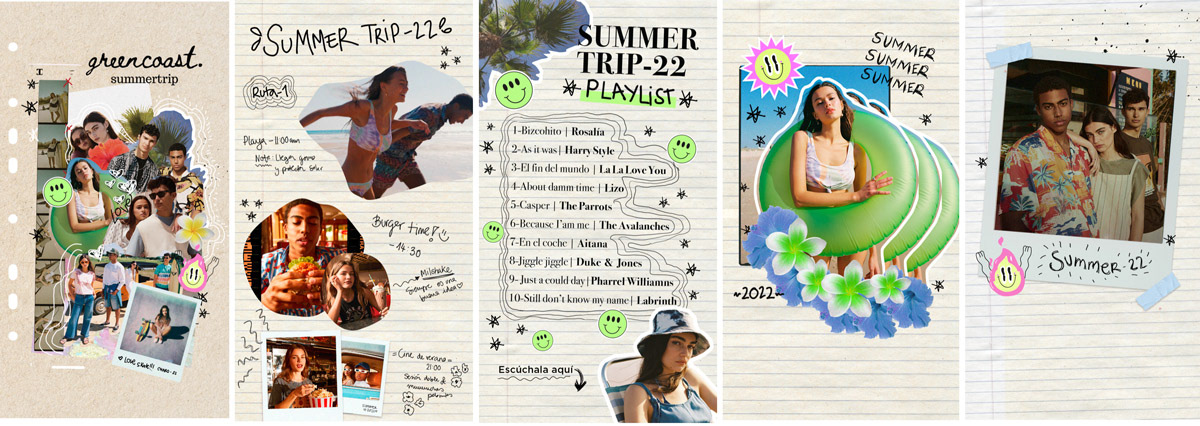 greencoast.
summertrip
SUMMER TRIP-22
Ruta-1
Playa - 11:00 am
Note: Llevar gorro
y protector solar
Burger time!
- 14:30
Milshake
Siempre es una
buena idea
= Cine de verano =
21:00
Sesión doble de
SUMMER
TRIP-22
PLAYLIST
1-Bizcohito | Rosalía
2-As it was | Harry Style
3-El fin del mundo | La La Love You
4-About damm time | Lizo
5-Casper | The Parrots
6-Because I'am me | The Avalanches
7-En el coche | Aitana
8-Jiggle jiggle | Duke & Jones
9-Just a could day| Pharrel Williamns
10-Still don't know my name | Labrinth
Escúchala aquí
SUMMER
SUMMER
SUMMER
~2022~
Summer-22